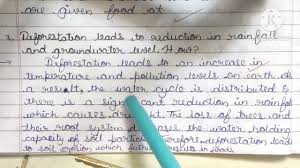 are given food at
3. Deforestation leads to reduction in rainfall
and groundwater level. How?
Deforestation leads to an increase in
temperature and pollution levels on earth. As
a result, the water cycle is distributed &
there is a significant reduction in rainfall
which causes drought. The loss of trees and
their root system decreases the water holding
capacity of soil particles. Therefore, deforestation leads
to soil erosion